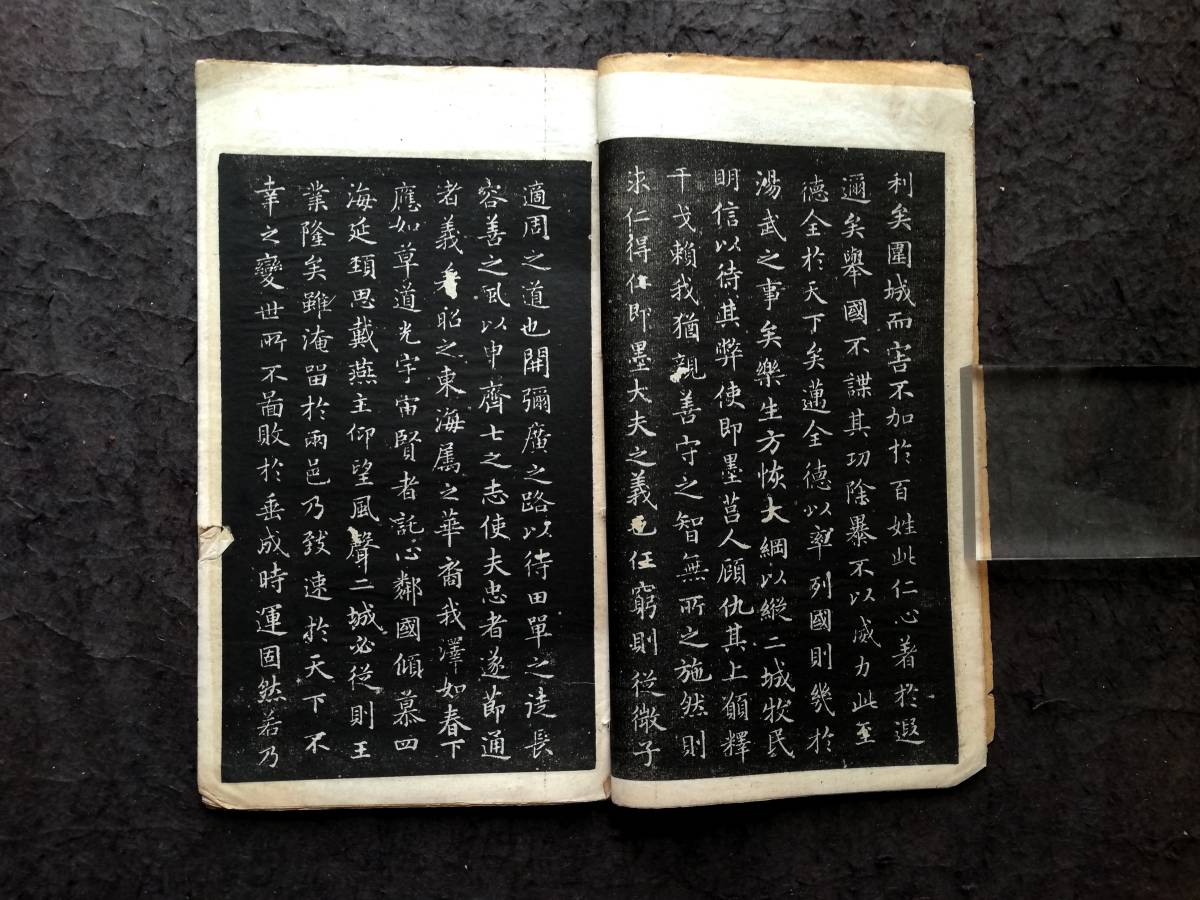 利矣圍城而害不加於百姓此仁心著於遐
邇矣舉國不謀其功除暴不以威力此至
德全於天下矣邁全德以率列國則幾於
湯武之事矣樂生方恢大綱以縱二城牧民
明信以待其弊使即墨莒人顧仇其上願釋
干戈賴我猶親善守之智無所之施然則
求仁得仁即墨大夫之義也任窮則從微子
適周之道也開彌廣之路以待田單之徒長
容善之風以申齊士之志使夫忠者遂節通
者義著昭之東海屬之華裔我澤如春下
應如草道光宇宙賢者託心鄰國傾慕四
海延頸思戴燕主仰望風聲二城必從則王
業隆矣雖淹留於兩邑乃致速於天下不
幸之變世所不啚敗於垂成時運固然若乃